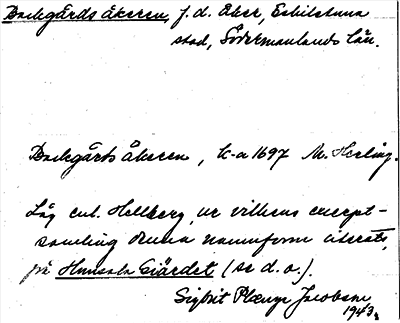 Backgårds åkeren, f.d. åker, Eskilstuna
stad, Södermanlands län.
Backgårds åkeren, k-a 1697 M. Herling.
Låg enl. Hellberg, ur vilkens excerpt-
samling denna namnform citerats,
på Hunsala Giärdet (se d.o.).
Sigbrit Plænge Jacobson
1943.